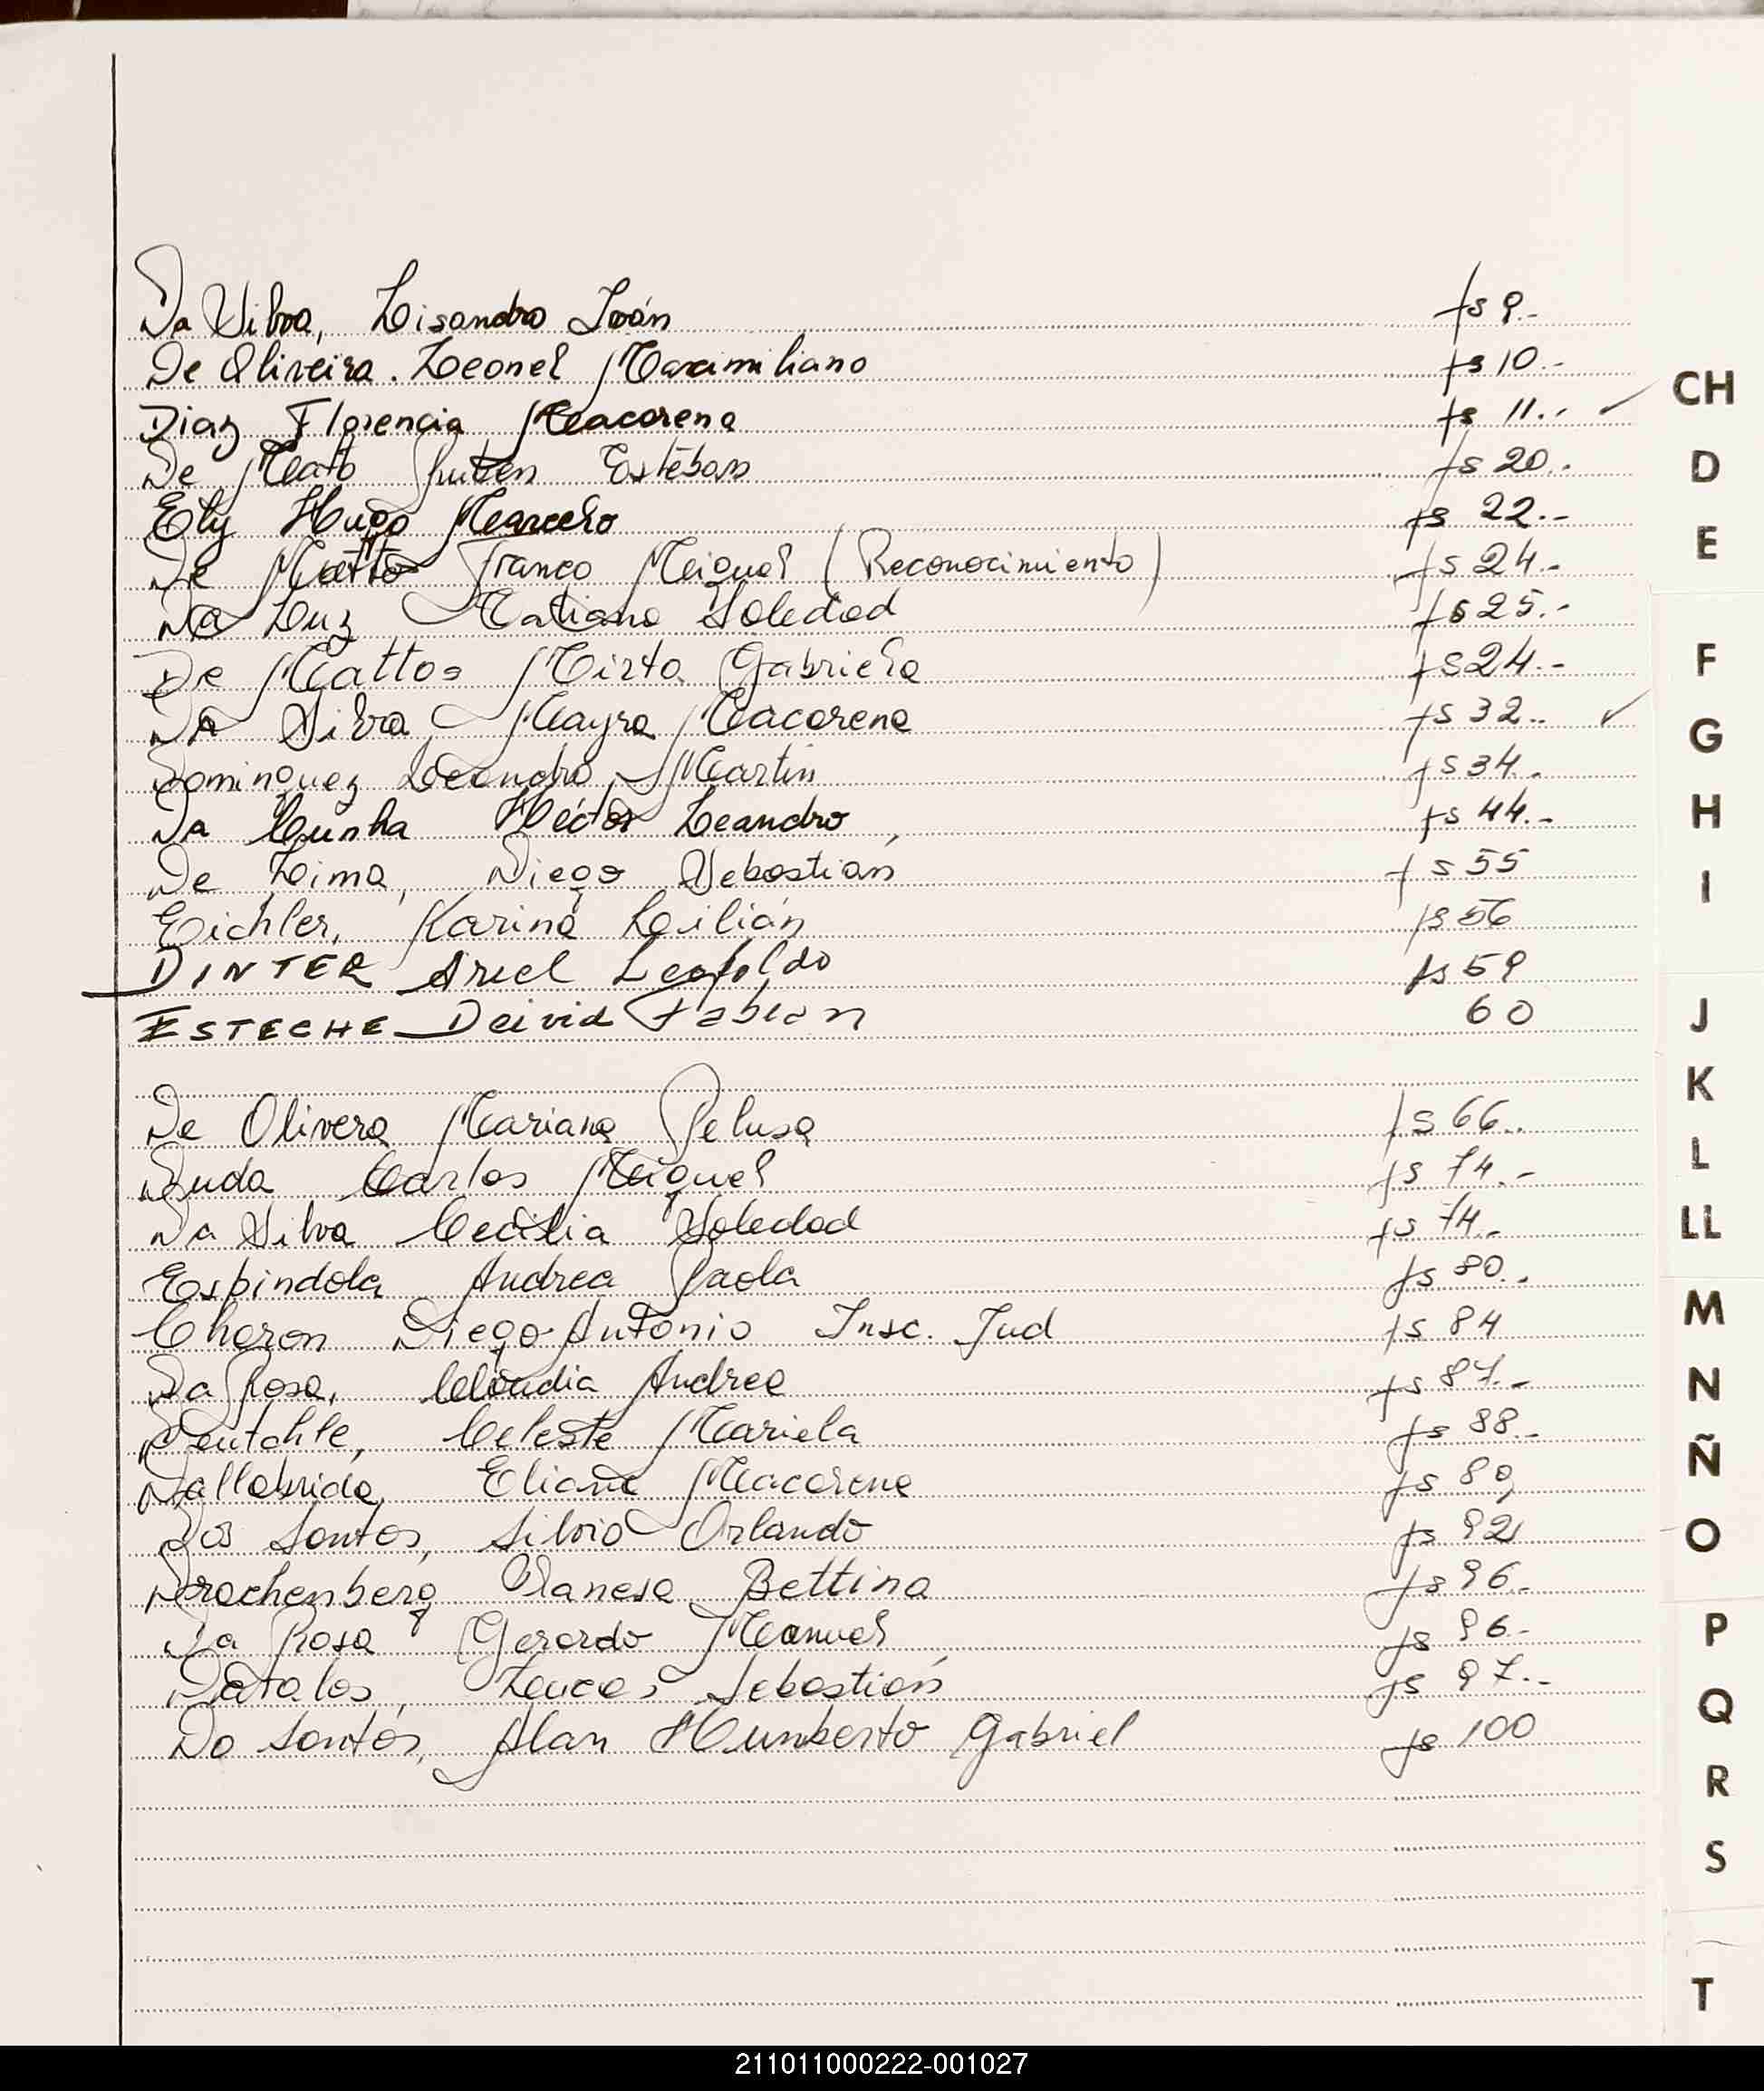 Da Silva, Lisandro Iván fs 9.-
De Oliveira. Leonel Maximiliano fs 10.-
Diaz Florencia Macarena fs 11.-
De Mato Rubén Estéban fs 20.
Ely Hugo Marcelo fs 22.-
De Matto Franco Miguel (Reconocimiento) fs 24.-
Da Luz Tatiana Soledad fs 25.-
De Mattos Mirta Gabriela fs 24.-
Da Silva, Mayra Macarena fs 32..
Dominguez Leandro Martin fs 34.
Da Cunha Héctor Leandro fs 44.-
De Lima, Diego Sebastián fs 55
Eichler, Karina Lilián fs 56
DINTER Ariel Leopoldo fs 59
ESTECHE Deivid Fabian 60
De Olivera Mariana Pelusa fs 66..
Duda Carlos Miguel fs 74.-
Da Silva Cecilia Soledad fs 74.-
Espindola Andrea Paola fs 80..
Choron Diego Antonio Insc. Jud fs 84
Da Rosa, Claudia Andrea fs 87.-
Celeste Mariela fs 88.-
Dallabrida, Eliana Macarena fs 89,
Dos Santos, Silvio Orlando fs 92
Drachenberg Vanesa Bettina fs 96.
Da Rosa Gerardo Manuel fs 96.-
Datalos, Lucas Sebastián fs 97.-
Do Santos, Alan Humberto Gabriel fs 100
CH
D
E
F
G
H
I
J
K
L
LL
M
N
Ñ
O
P
Q
R
S
T
211011000222-001027